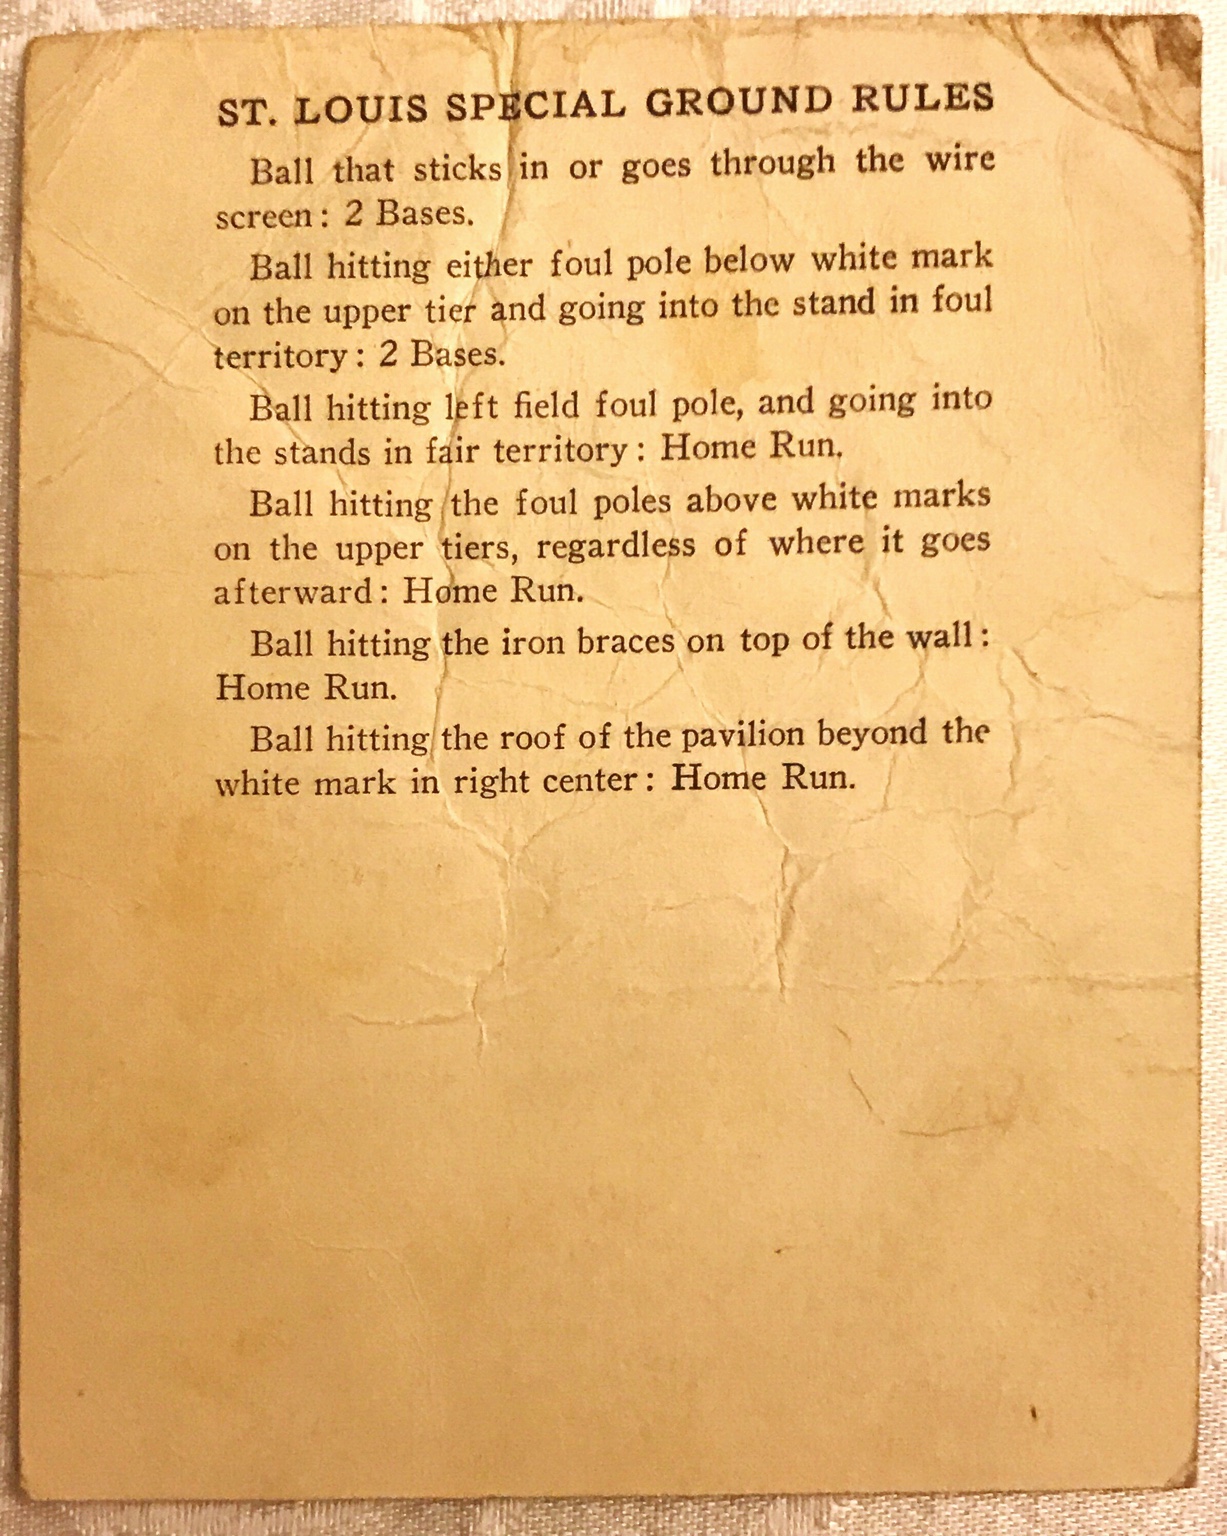 ST. LOUIS SPECIAL GROUND RULES
Ball that sticks in or goes through the wire
screen: 2 Bases.
Ball hitting either foul pole below white mark
on the upper tier and going into the stand in foul
territory: 2 Bases.
Ball hitting left field foul pole, and going into
the stands in fair territory: Home Run.
Ball hitting the foul poles above white marks
on the upper tiers, regardless of where it goes
afterward: Home Run.
Ball hitting the iron braces on top of the wall:
Home Run.
Ball hitting the roof of the pavilion beyond the
white mark in right center: Home Run.